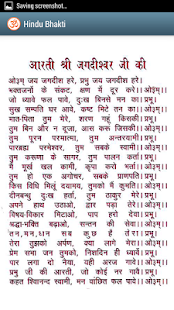 Saving screenshot...
Hindu Bhakti
आरती श्री जगदीश्वर जी की
ओ३म् जय जगदीश हरे, प्रभु जय जगदीश हरे।
भक्तजनों के संकट, क्षण में दूर करे। ओ३म्।।
जो ध्यावे फल पावे, दुःख बिनसे मन का। प्रभु।
सुख सम्पति घर आवे, कष्ट मिटे तन का। ओ३म्।।
मात-पिता तुम मेरे, शरण गहूं किसकी। प्रभु।
तुम बिन और न दूजा, आस करूं जिसकी। ओ३म्।।
तुम पूरन परमात्मा, तुम अन्तर्यामी। प्रभु।
पारब्रह्म परमेश्वर, तुम सबके स्वामी। ओ३म्।।
तुम करूणा के सागर, तुम पालन कर्ता। प्रभु।
मैं मूर्ख खल कामी, कृपा करो भर्ता। ओ३म्।।
तुम हो एक अगोचर, सबके प्राणपति। प्रभु।
किस विधि मिलूं दयामय, तुमको मैं कुमति। ओ३म्।।
दीनबन्धु दुःख हर्ता, तुम ठाकुर मेरे। प्रभु।
अपने हाथ उठाओ, द्वार पड़ा तेरे। ओ३म्।।
विषय-विकार मिटाओ, पाप हरो देवा। प्रभु।
श्रद्धा-भक्ति बढ़ाओ, सन्तन की सेवा। ओ३म्।।
तन,मन,धन सब कुछ है तेरा। प्रभु।
तेरा तुझको अर्पण, क्या लागे मेरा। ओ३म्।।
प्रेम सभा जन तुमको, निशदिन ही ध्यावें। प्रभु।
पार लगा दो नैया, यही अरज गावें। ओ३म्।।
प्रभु जी की आरती, जो कोई नर गावे। प्रभु।
कहत शिवानन्द स्वामी, मन वांछित फल पावे। ओ३म्।।